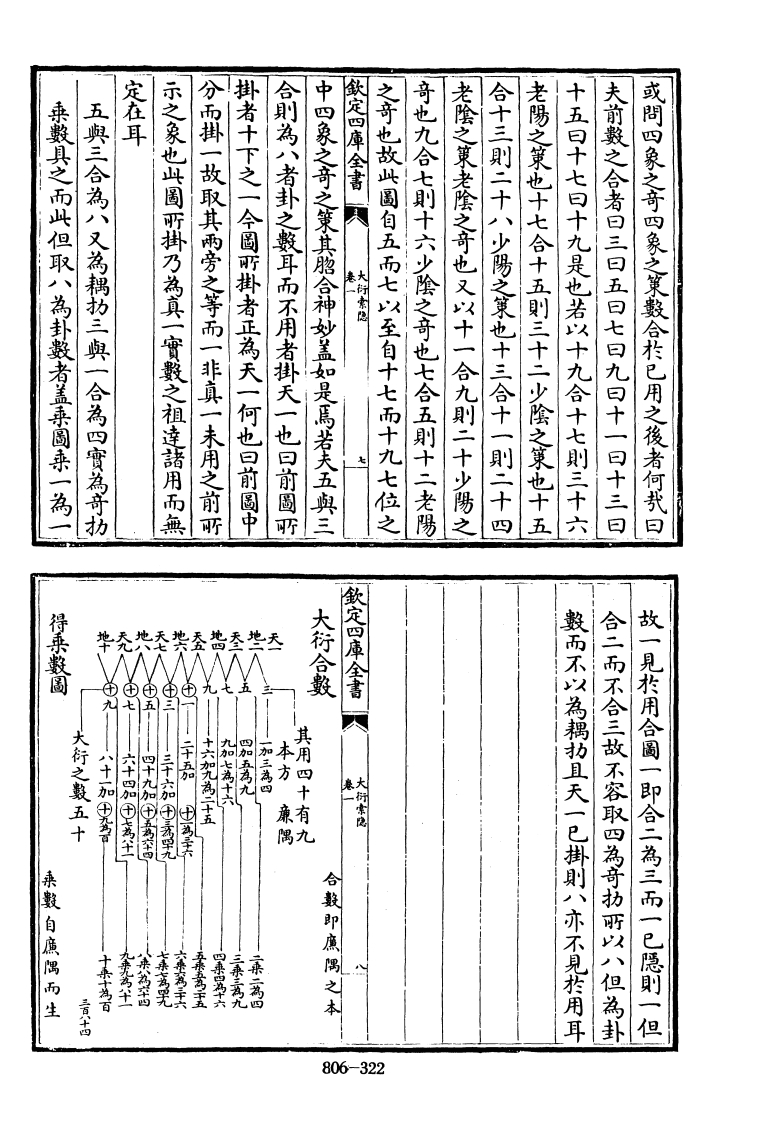 或問四象之竒四象之策數合於已用之後者何哉曰
夫前數之合者曰三曰五曰七曰九曰十一曰十三曰
十五曰十七曰十九是也若以十九合十七則三十六
老陽之策也十七合十五則三十二少陰之策也十五
合十三則二十八少陽之策也十三合十一則二十四
老陰之策老陰之竒也又以十一合九則二十少陽之
竒也九合七則十六少陰之竒也七合五則十二老陽
之竒也故此圖自五而七以至自十七而十九七位之
欽定四庫全書
大衍索隱
卷一
七
中四象之竒之策其脗合神妙蓋如是焉若夫五與三
合則為八者卦之數耳而不用者掛天一也曰前圖所
掛者十下之一今圖所掛者正為天一何也曰前圖中
分而掛一故取其兩旁之等而一非真一未用之前所
示之象也此圖所掛乃為真一實數之祖達諸用而無
定在耳
五與三合為八又為耦扐三與一合為四實為竒扐
乘數具之而此但取八為卦數者蓋乘圖乘一為一
故一見於用合圖一即合二為三而一已隱則一但
合二而不合三故不容取四為竒扐所以八但為卦
數而不以為耦扐且天一已掛則八亦不見於用耳
欽定四庫全書
大衍索隱
卷一
八
大衍合數
天一
地二
天三
地四
天五
地六
天七
地八
天九
地十
三
五
七
九
十一
十三
十五
十七
十九
得乘數圖
其用四十有九
本方
廉隅
一加三為四
四加五為九
九加七為十六
十六加九為二十五
二十五加十一為三十六
三十六加十三為四十九
四十九加十五為六十四
六十四加十七為八十一
八十一加十九為百
大衍之數五十
合數即廉隅之本
二乘二為四
三乘三為九
四乘四為十六
五乘五為二十五
六乘六為三十六
七乘七為四十九
八乘八為六十四
九乘九為八十一
十乘十為百
三百八十四
乘數自廉隅而生
806-322